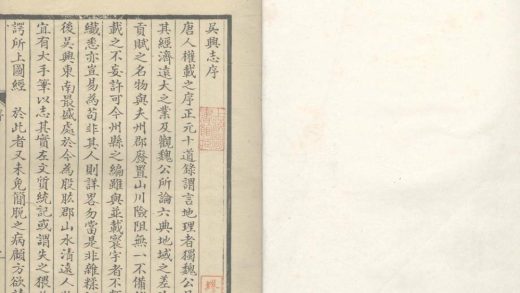 吳興志序
唐人權載之序正元十道錄謂言地理者獨魏公
其經濟遠大之業及觀魏公所論六典地域之差
貢賦之名物與夫州郡廢置山川險阻無一不備
載之不妄許可今州縣之編雖與並載寰宇者不
纖悉亦豈易為苟非其人則詳畧勿當是非雜糅
後吳興東南最盛處於今為股肱郡山水清遠人
宜有大手筆以志其實左文質統記或謂失之猥
諤所上圖經 於此者又未免簡脫之病顧方欲